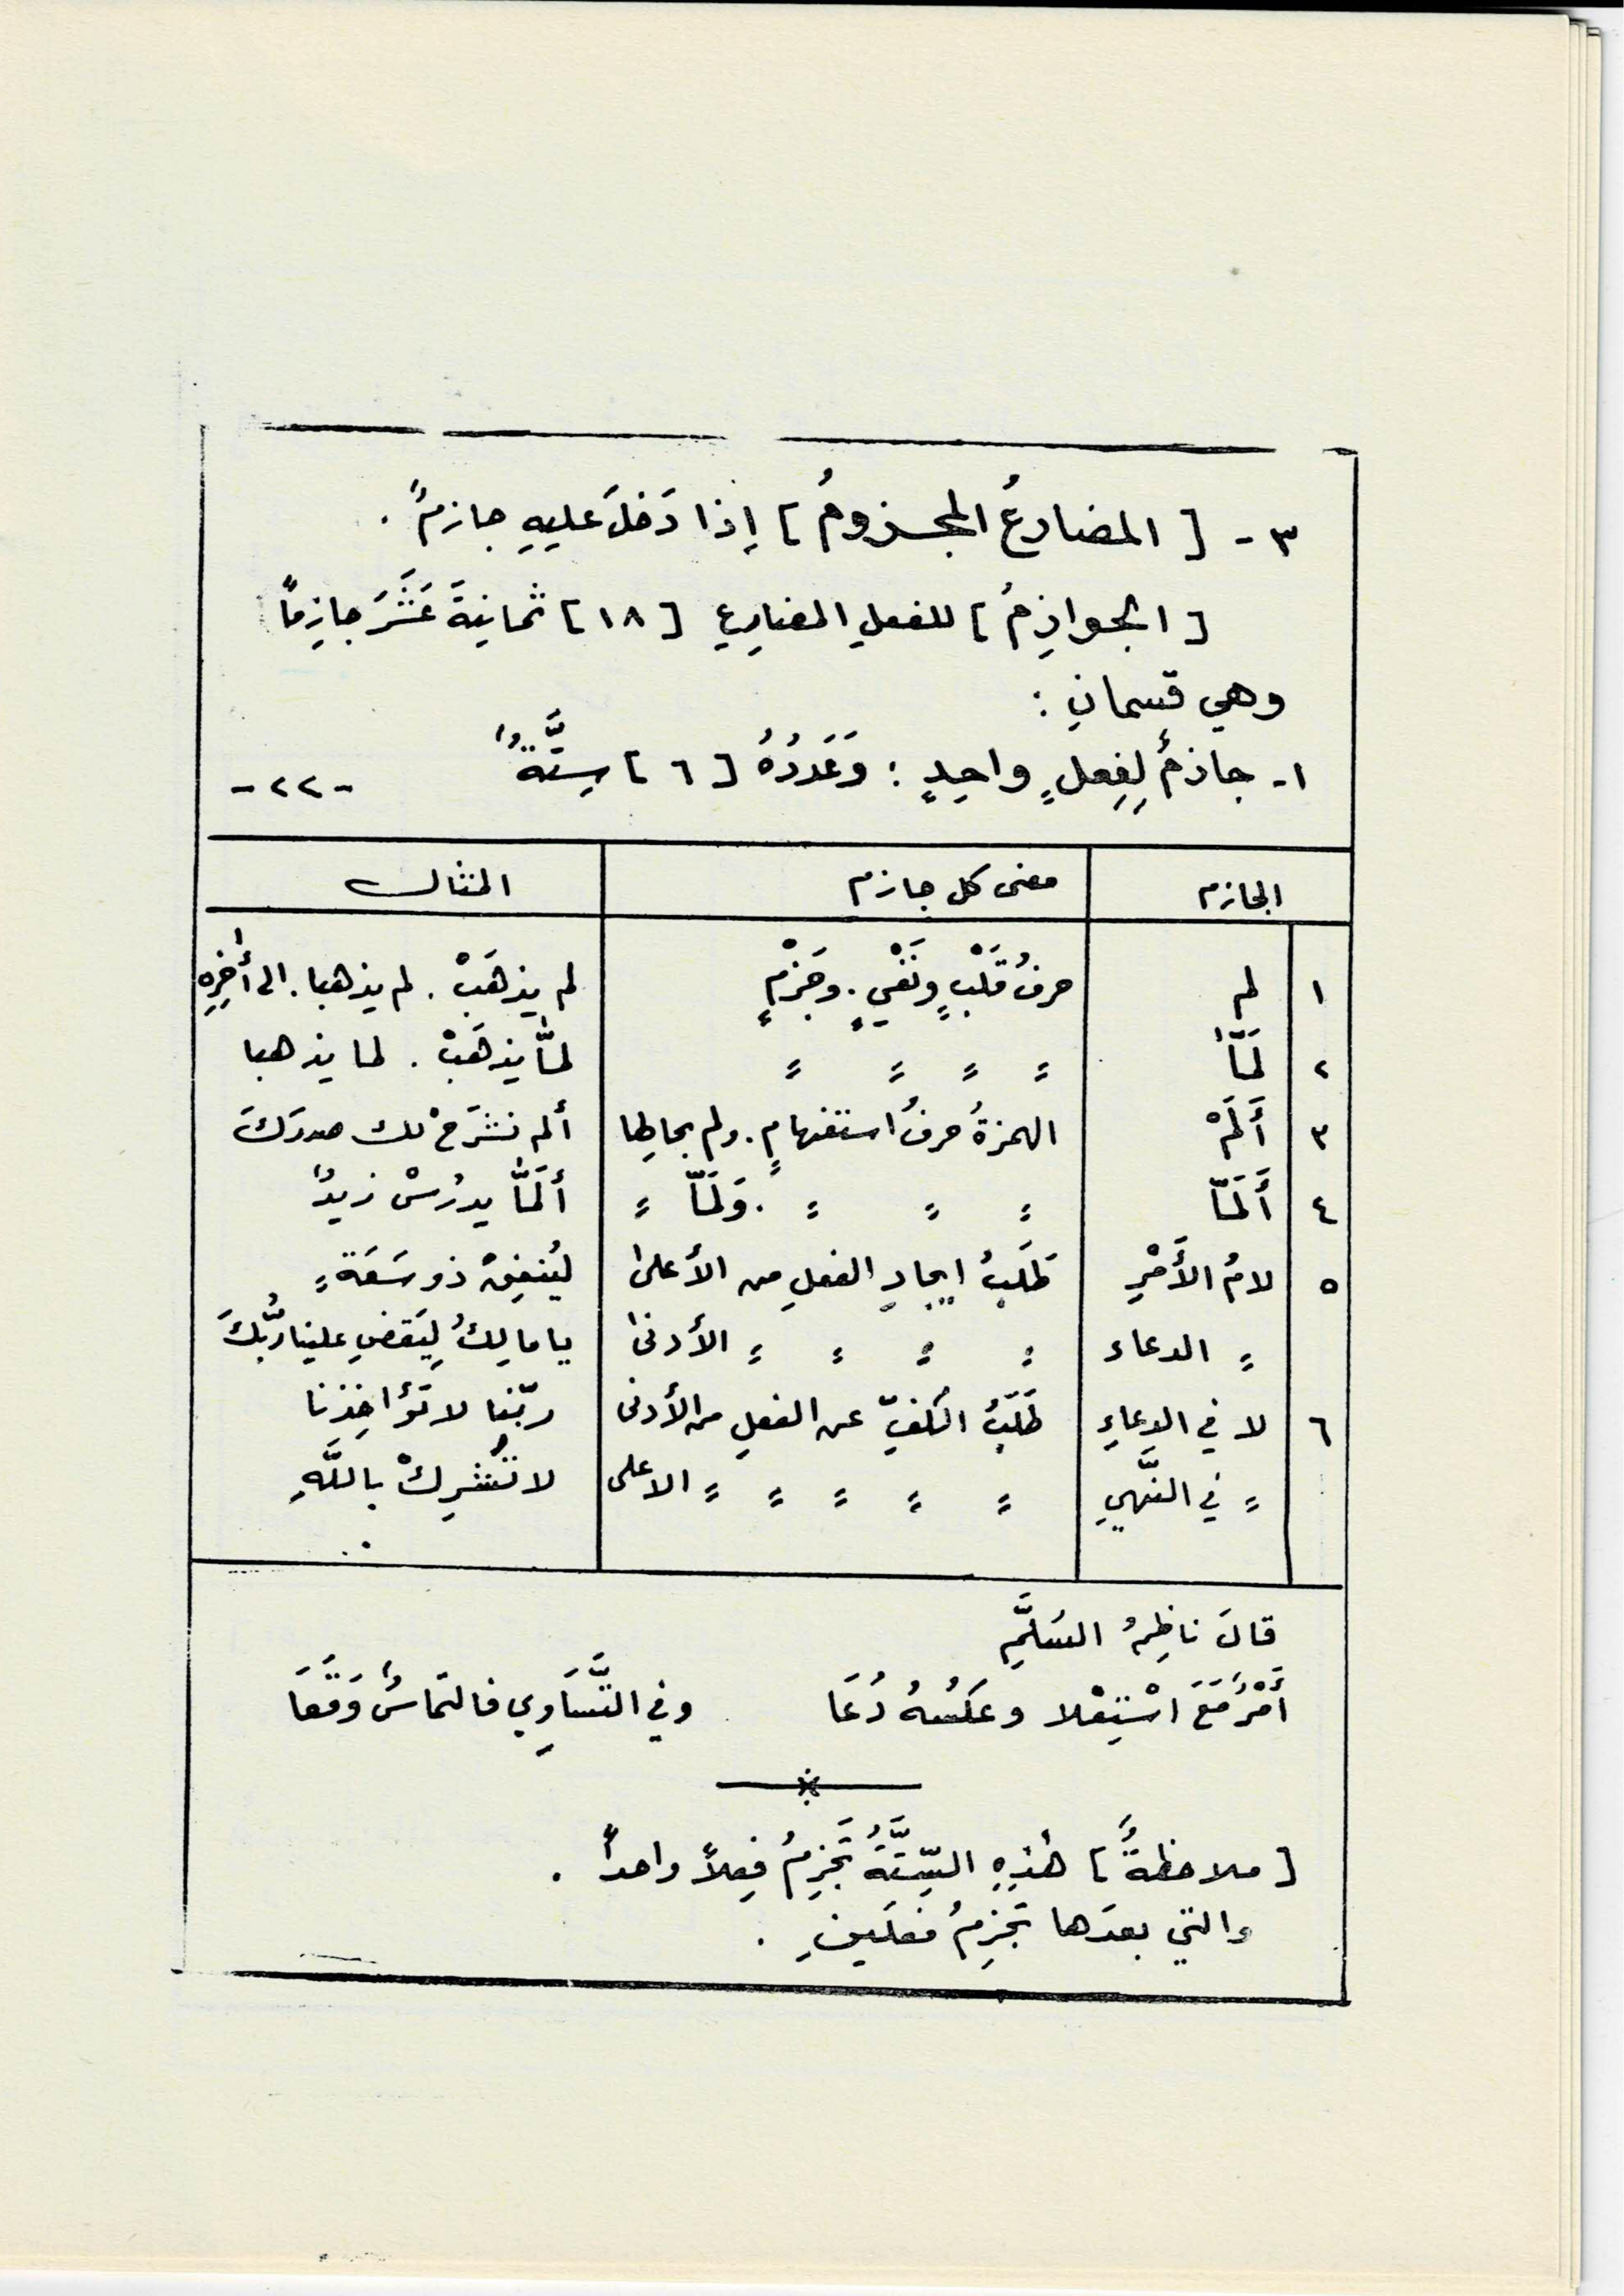 ٣ - [ المضارعُ المجزومُ ] إِذا دَخلَ عليهِ جازمٌ .
[ الجوازِمُ ] للفعلِ المضارِعِ [ ١٨ ] ثمانيةَ عَشَرَ جازِماً
وهي قسمانِ :
١- جازمٌ لِفِعلٍ واحِدٍ : وَعَدَدُهُ [ ٦ ] سِتَّةٌ -٢٢-
الجازم معنى كل جازم المثال
١ لم حرفُ قَلْبٍ ونَفْيٍ . وجَزْمٍ لم يذهَبْ . لم يذهبا . الى أُخِرِه
٢ لَمّا = = = = لمَّا يذهَبْ . لما يذهبا
٣ أَلَمْ الهمزةُ حرفُ استفهامٍ . ولم بحالِها ألم نشرَحْ لك صدرَكَ
٤ أَلَمّا = = = . وَلَمّا = أَلَمَّا يدرُسْ زيدٌ
٥ لامُ الأَمْرِ طَلَبُ ايجادِ الفعلِ من الأعلىٰ ليُنفِقْ ذو سَعَةٍ
= الدعاء = = = = الأدنىٰ يا مالِكُ لِيَقضِ علينا ربُّكَ
٦ لا في الدعاءِ طَلَبُ الكفِّ عن الفعلِ من الأدنى ربّنا لا تؤاخِذنا
= في النَّهيِ = = = = = الاعلى لا تُشرِكْ باللَّهِ
قالَ ناظِمُ السُلَّمِ
أَمْرٌ مَعَ اسْتِعْلا وعكسُهُ دُعَا وفي التَّسَاوِي فالتماسٌ وَقَعَا
[ ملاحظةٌ ] هٰذِهِ السِّتَّةُ تَجزِمُ فِعلاً واحداً .
والتي بعدَها تجزِمُ فعلَينِ .